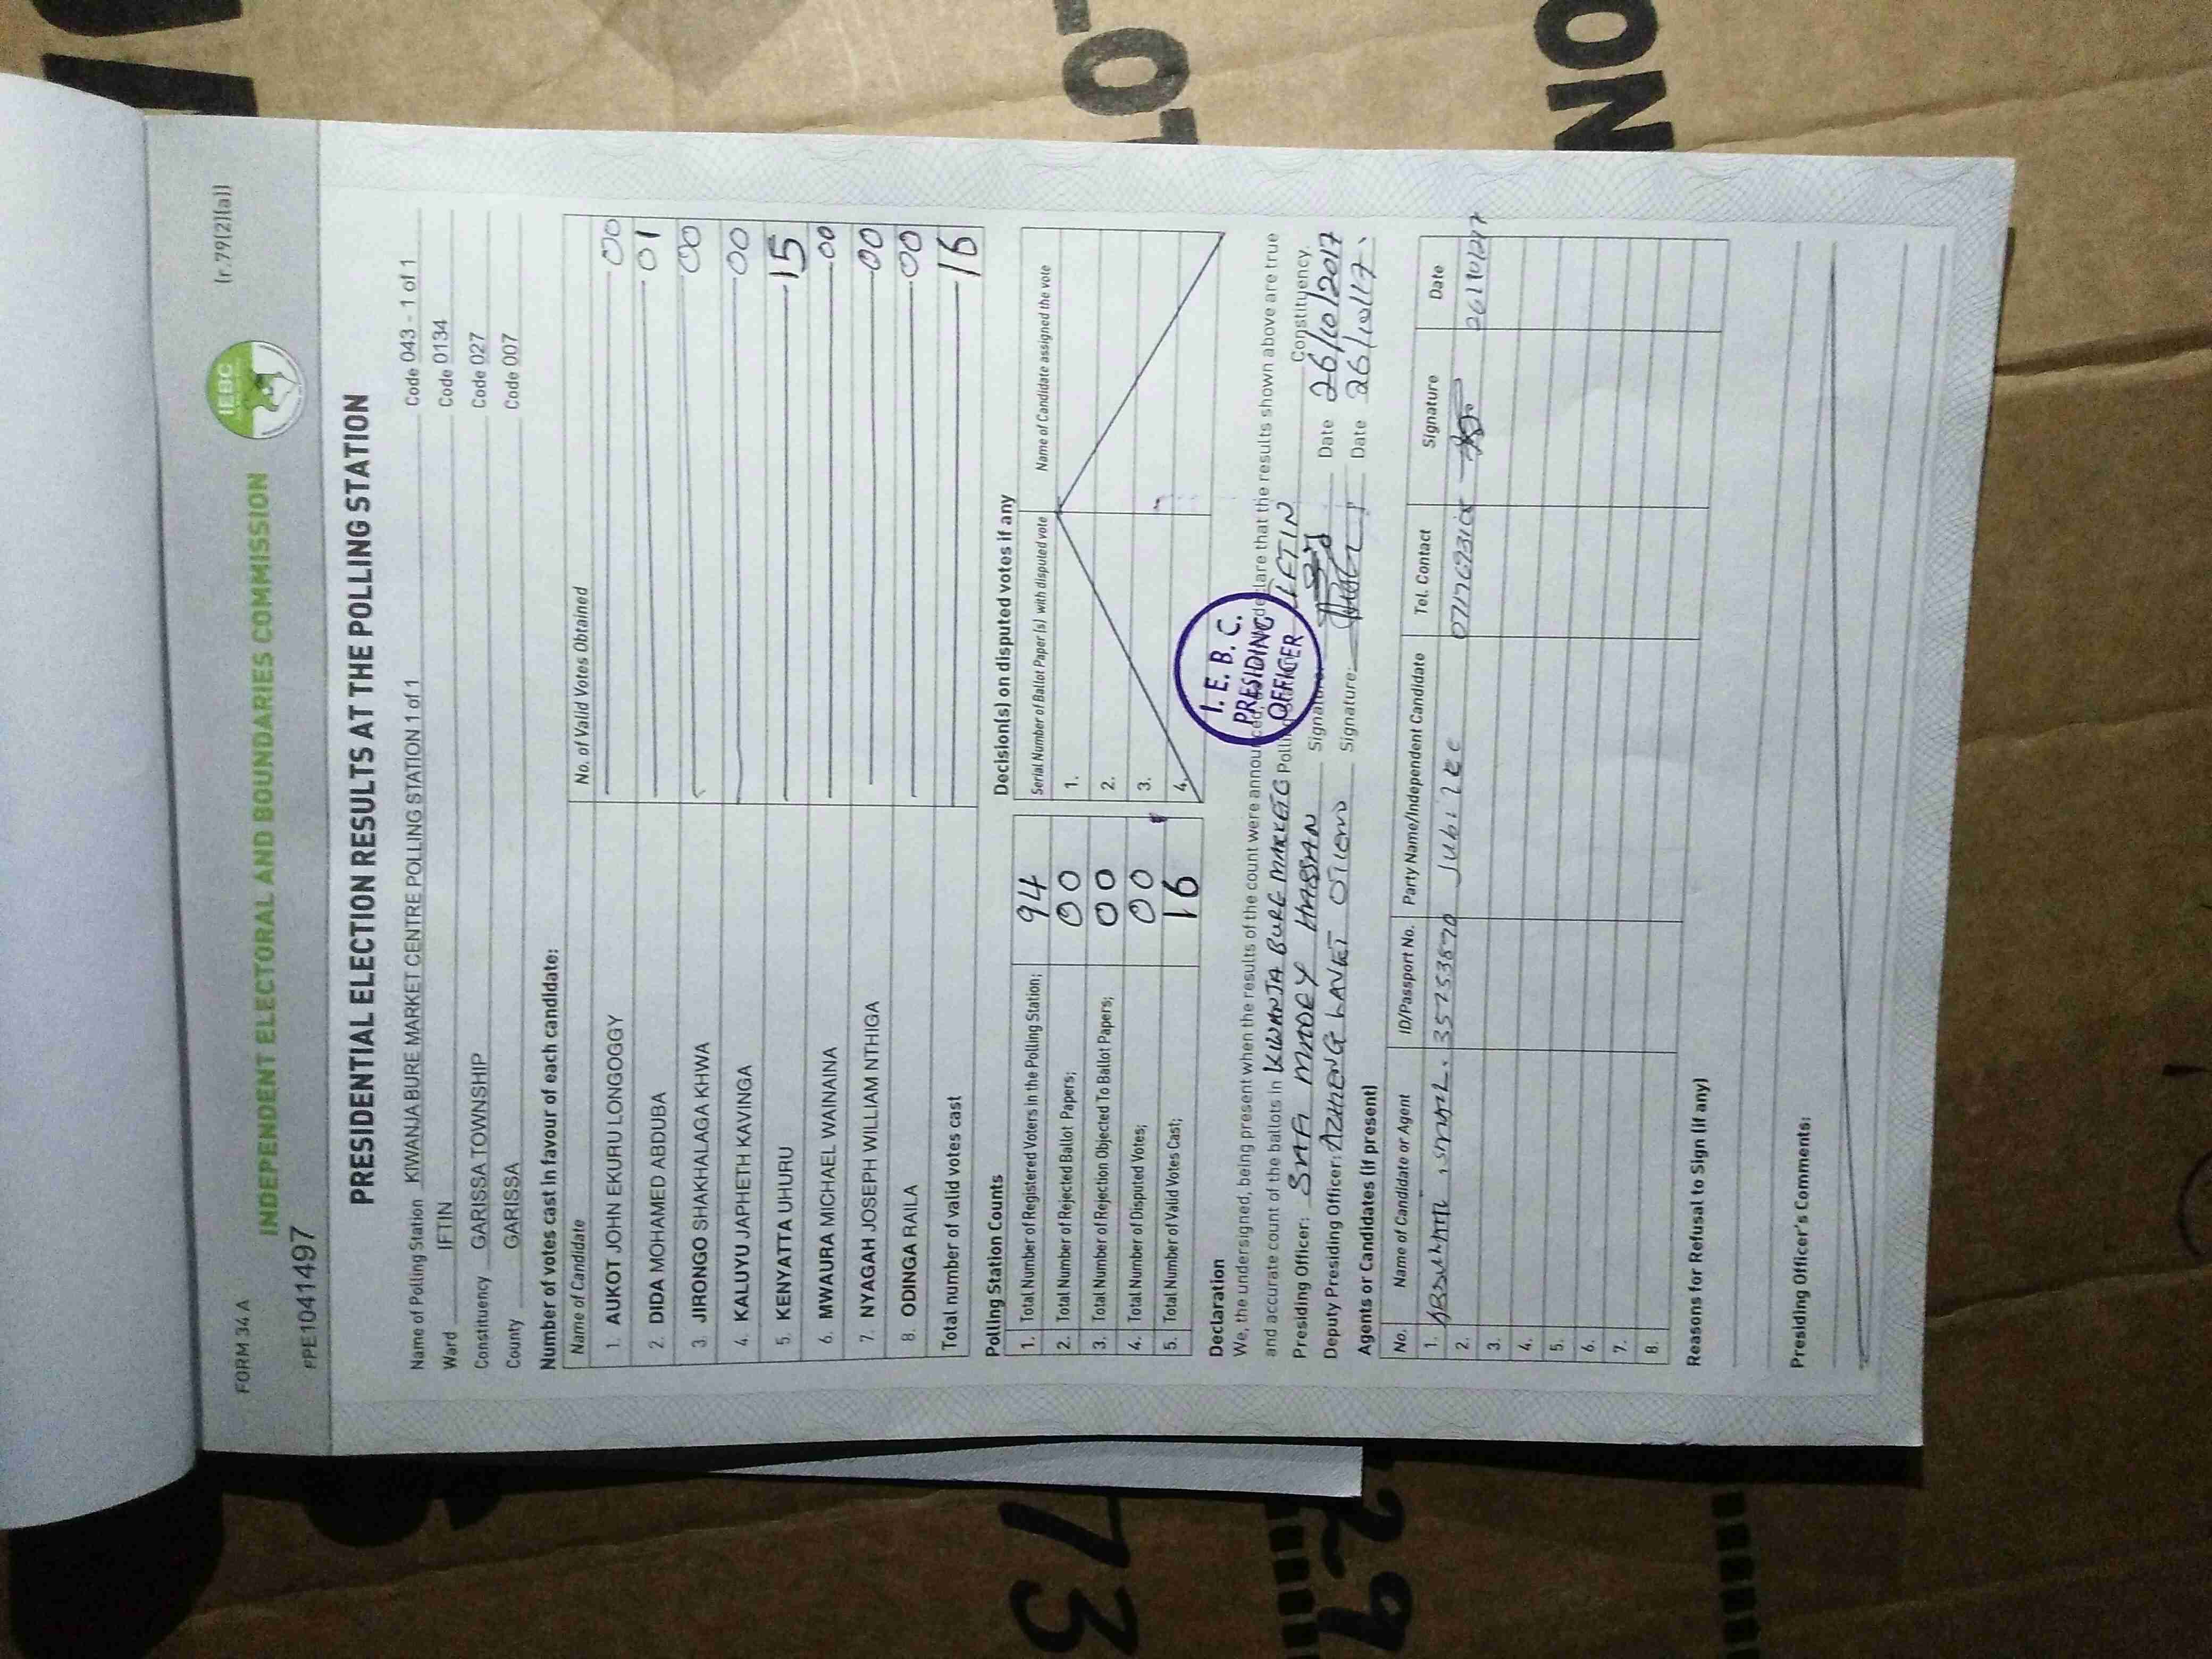 FORM 34 A
(r.79(2)(a))
IEBC
INDEPENDENT ELECTORAL AND BOUNDARIES COMMISSION
PPE1041497
PRESIDENTIAL ELECTION RESULTS AT THE POLLING STATION
Name of Polling Station KIWANJA BURE MARKET CENTRE POLLING STATION 1 of 1 Code 043 - 1 of 1
Ward IFTIN Code 0134
Constituency GARISSA TOWNSHIP Code 027
County GARISSA Code 007
Number of votes cast in favour of each candidate:
Name of Candidate No. of Valid Votes Obtained
1. AUKOT JOHN EKURU LONGOGGY 00
2. DIDA MOHAMED ABDUBA 01
3. JIRONGO SHAKHALAGA KHWA 00
4. KALUYU JAPHETH KAVINGA 00
5. KENYATTA UHURU 15
6. MWAURA MICHAEL WAINAINA 00
7. NYAGAH JOSEPH WILLIAM NTHIGA 00
8. ODINGA RAILA 00
Total number of valid votes cast 16
Polling Station Counts
1. Total Number of Registered Voters in the Polling Station; 94
2. Total Number of Rejected Ballot Papers; 00
3. Total Number of Rejection Objected To Ballot Papers; 00
4. Total Number of Disputed Votes; 00
5. Total Number of Valid Votes Cast; 16
Decision(s) on disputed votes if any
Serial Number of Ballot Paper(s) with disputed vote Name of Candidate assigned the vote
1.
2.
3.
4.
I. E. B. C.
PRESIDING
OFFICER
Declaration
We, the undersigned, being present when the results of the count were announced, declare that the results shown above are true
and accurate count of the ballots in KIWANJA BURE MARKET Polling Constituency.
Presiding Officer: HASSAN Signature: Date 26/10/2017
Deputy Presiding Officer: Signature: Date 26/10/17.
Agents or Candidates (if present)
No. Name of Candidate or Agent ID/Passport No. Party Name/Independent Candidate Tel. Contact Signature Date
1. Jubilee 26/10/2017
2.
3.
4.
5.
6.
7.
8.
Reasons for Refusal to Sign (if any)
Presiding Officer's Comments:
73
29
NO